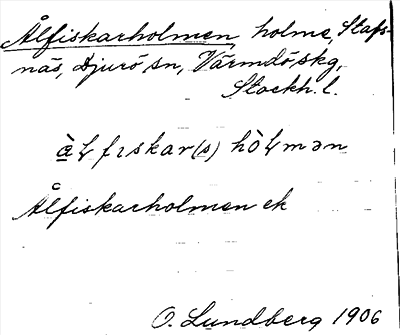 Ålfiskarholmen, holme, Stafs-
näs, Djurö sn, Värmdö skg,
Stockh. l.
àⱡfɪskar(s)hòⱡmən
Ålfiskarholmen ek
O. Lundberg 1906